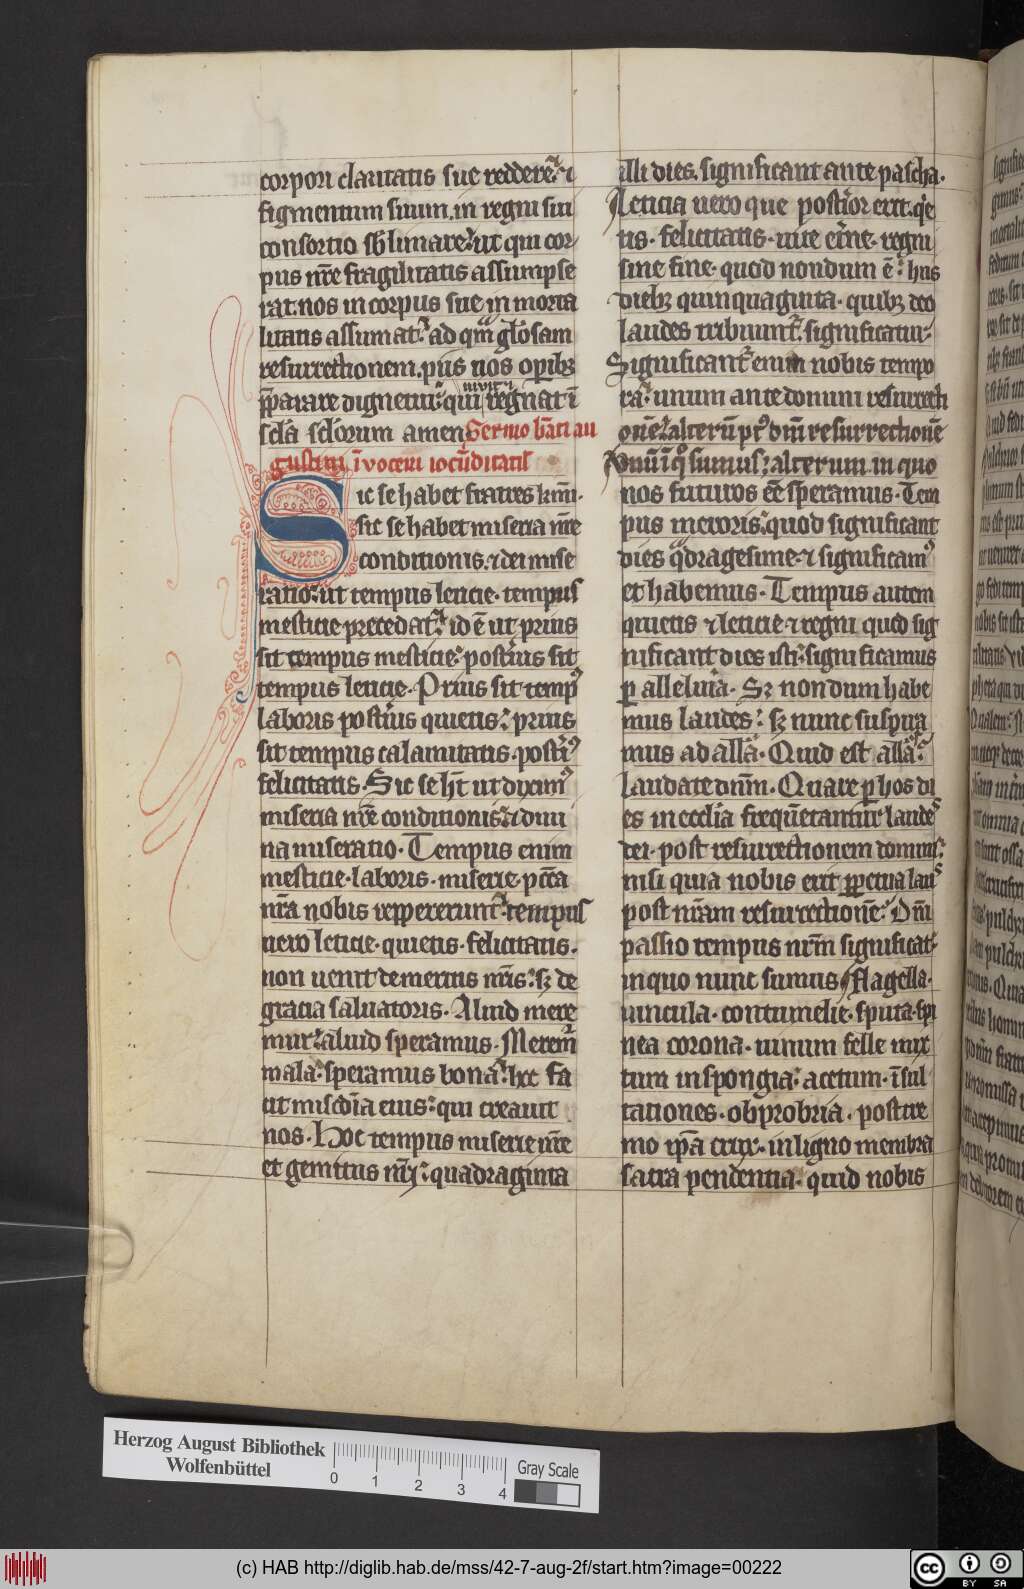 corpori claritatis sue reddere ⁊
figmentum suum. in regni sui
consortio sblimare. ut qui cor
pus nr̄e fragilitatis assumpse
rat. nos in corpus sue inmorta
litatis assumat. ad qͣm gl̄osam
resurrectionem. pius nos op̄ibꝫ
p̄parare dignetur. qui regnat ī
scl̄a scl̄orum amen Sermo bāti au
gustini ī vocem iocūditatis
Sic se habet fratres kmi.
sic se habet miseria nr̄e
conditionis. ⁊ dei mise
ratio. ut tempus leticie. tempus
mesticie precedat. id ē ut prius
sit tempus mesticie. post'ius sit
tempus leticie. Prius sit tempꝰ
laboris post'ius quietis. prius
sit tempus calamitatis. post'iꝰ
felicitatis. Sic se hт̄ ut diximꝰ
miseria nr̄e conditionis. ⁊ diui
na miseratio. Tempus enim
mesticie. laboris. miserie. pcc̄a
nr̄a nobis reppererunt. tempus
uero leticie. quietis. felicitatis.
non uenit de meritis nr̄is. sꝫ de
gracia saluatoris. Aliud mere
mur. aliud speramus. Merem̄
mala. speramus bona. hoc fa
cit mis̄cdia eius. qui creauit
nos. Hoc tempus miserie nr̄e
et gemitus nr̄i. quadraginta
illi dies. significant ante pascha.
Leticia uero que post'ior erit. q'e
tis. felicitatis. uite et'ne. regni
sine fine. quod nondum ē. hiis
diebꝫ quinquaginta. quibꝫ deo
laudes tribuunt'. significatur.
Significant' enim nobis tempo
ra. unum ante domini resurrecti
onē. alterū pꝰ dn̄i resurrectionē
Vnū ī qͦ sumus. alterum in quo
nos futuros ēe speramus. Tem
pus meroris. quod significant
dies qͣdragesime. ⁊ significamꝰ
et habemus. Tempus autem
quietis ⁊ leticie ⁊ regni quod sig
nificant dies isti. significamus
p alleluia. Sꝫ nondum habe
mus laudes. sꝫ nunc suspira
mus ad allā. Quid est allā.
Laudate dnm̄. Quare p hos di
es in eccl̄ia freqūtantur laudes
dei. post resurrectionem domini.
nisi quia nobis erit p̄petua laus
post nr̄am resurrectionē. Dn̄i
passio tempus nr̄m significat.
in quo nunc sumus. Flagella.
uincula. contumelie. sputa. spi
nea corona. uinum felle mix
tum in spongia. acetum. īsul
tationes. obprobria. postre
mo ip̄a crux. in ligno membra
sacra pendentia. quid nobis
Herzog August Bibliothek
Wolfenbüttel
0 1 2 3 4
Gray Scale
(c) HAB http://diglib.hab.de/mss/42-7-aug-2f/start.htm?image=00222
cc BY SA